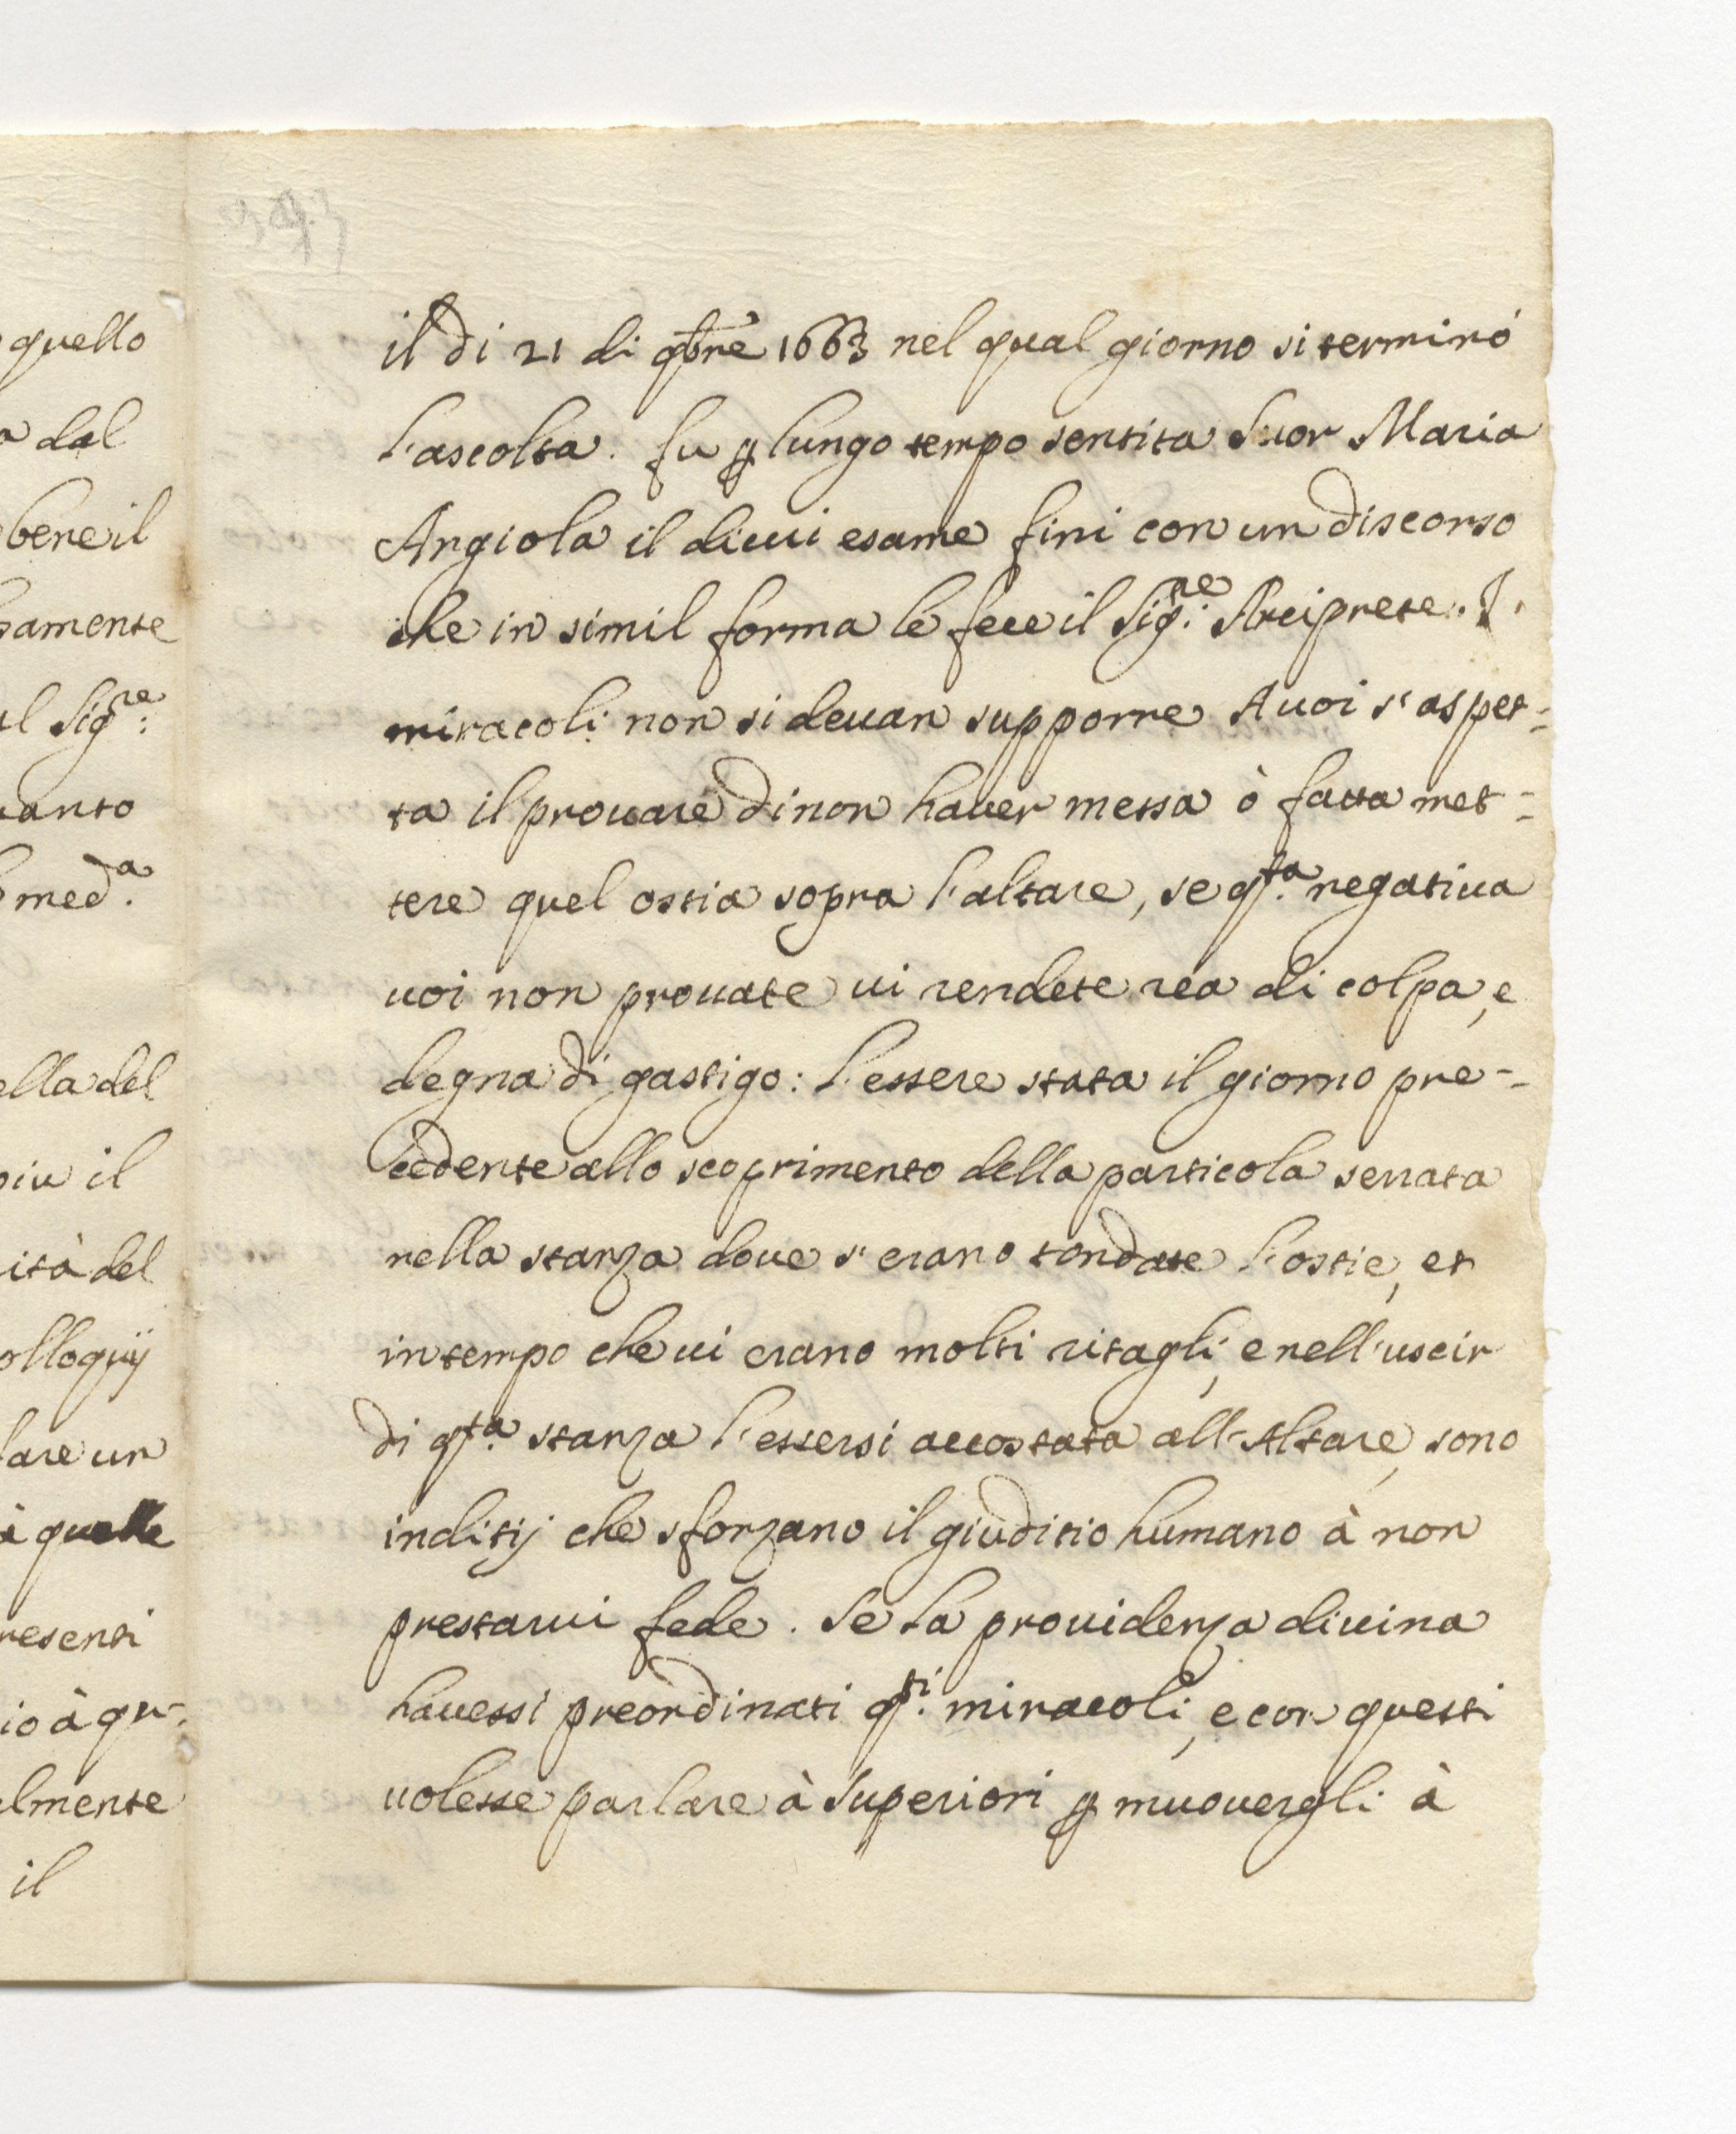 quello
dal
bene il
samente
al Sig.re
uanto
med.a
ella del
piu il
ità del
olloquij
lare un
à quelle
resenti
io à qu-
almente
il
393
il di 21 di 9bre 1663 nel qual giorno si terminó
l'ascolta. fu p lungo tempo sentita Suor Maria
Angiola il di cui esame fini con un discorso
che in simil forma le fece il Sig.re Arciprete. I
miracoli non si devan supporre A voi s'aspet-
ta il provare di non haver messa ò fatta met-
tere quel ostia sopra l'altare, se q.ta negativa
voi non provate vi rendete rea di colpa, e
degna di gastigo: l'essere stata il giorno pre-
cedente allo scoprimento della particola serrata
nella stanza dove s'erano tondate l'ostie, et
in tempo che vi erano molti ritagli, e nell'uscir
di q.ta stanza l'essersi accostata all'Altare, sono
inditij che sforzano il giuditio humano à non
prestarvi fede. Se la providenza divina
havessi preordinati q.ti miracoli, e con questi
volesse parlare à Superiori p muovergli à